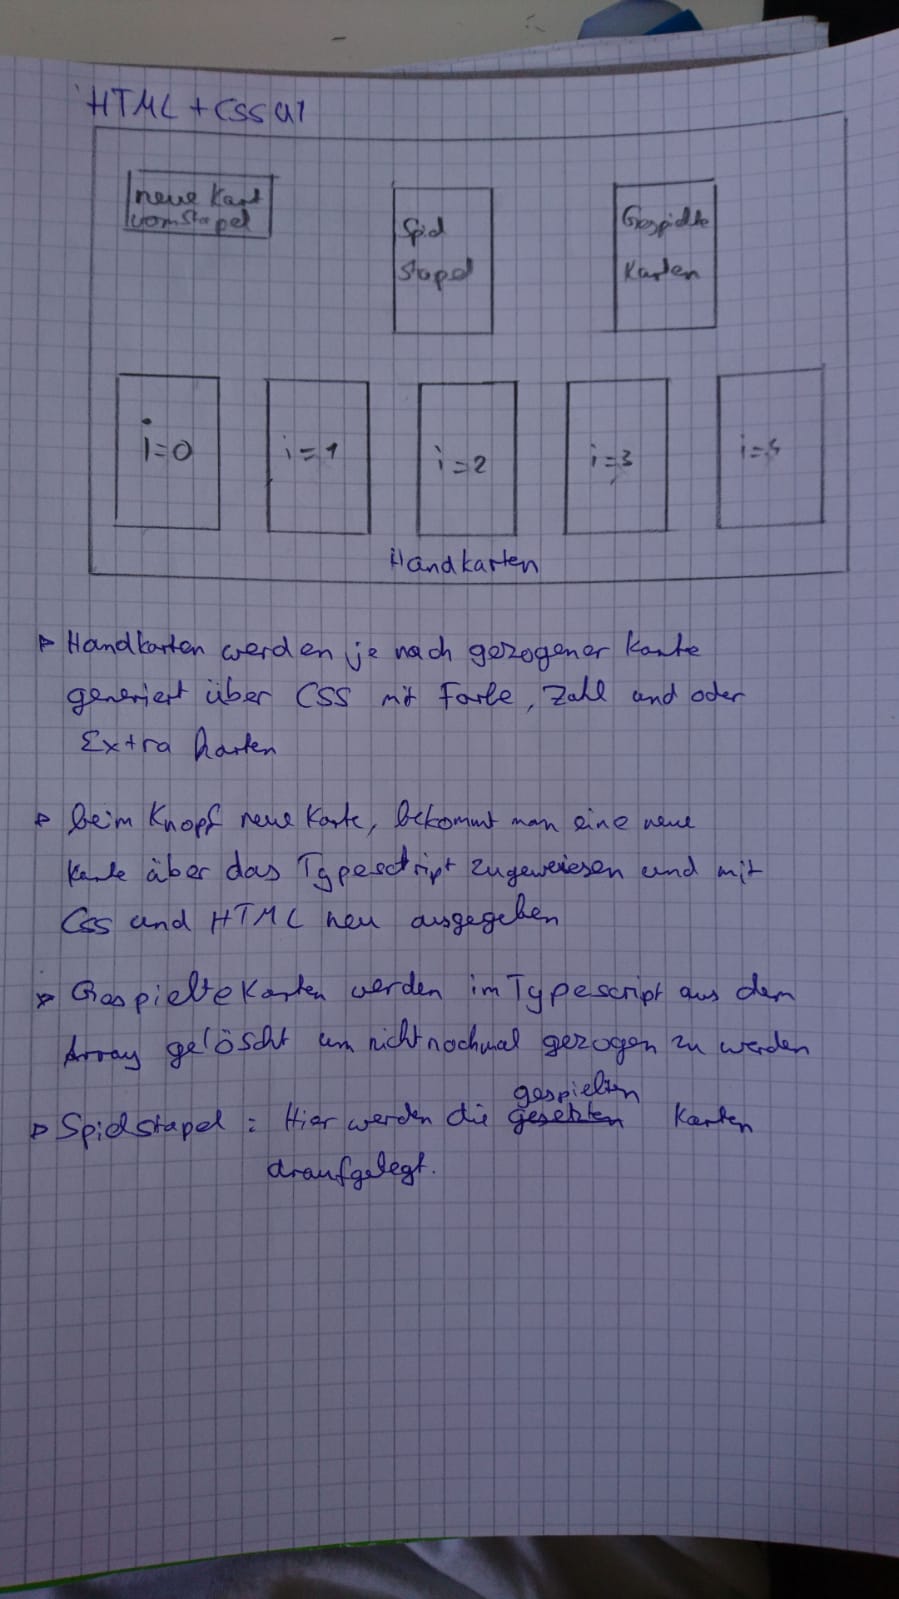 HTML + CSS A1
neue Kart
vom Stapel
Spiel
Stapel
Gespielte
Karten
i=0
i=1
i=2
i=3
i=4
Handkarten
Handkarten werden je nach gezogener Karte
generiert über CSS mit Farbe, Zahl und oder
Extra Karten
beim Knopf neue Karte, bekommt man eine neue
Karte über das Typescript zugewiesen und mit
Css und HTML neu ausgegeben
Gespielte Karten werden im Typescript aus dem
Array gelöscht um nicht nochmal gezogen zu werden
gespielten
Spielstapel : Hier werden die gesetzten Karten
draufgelegt.